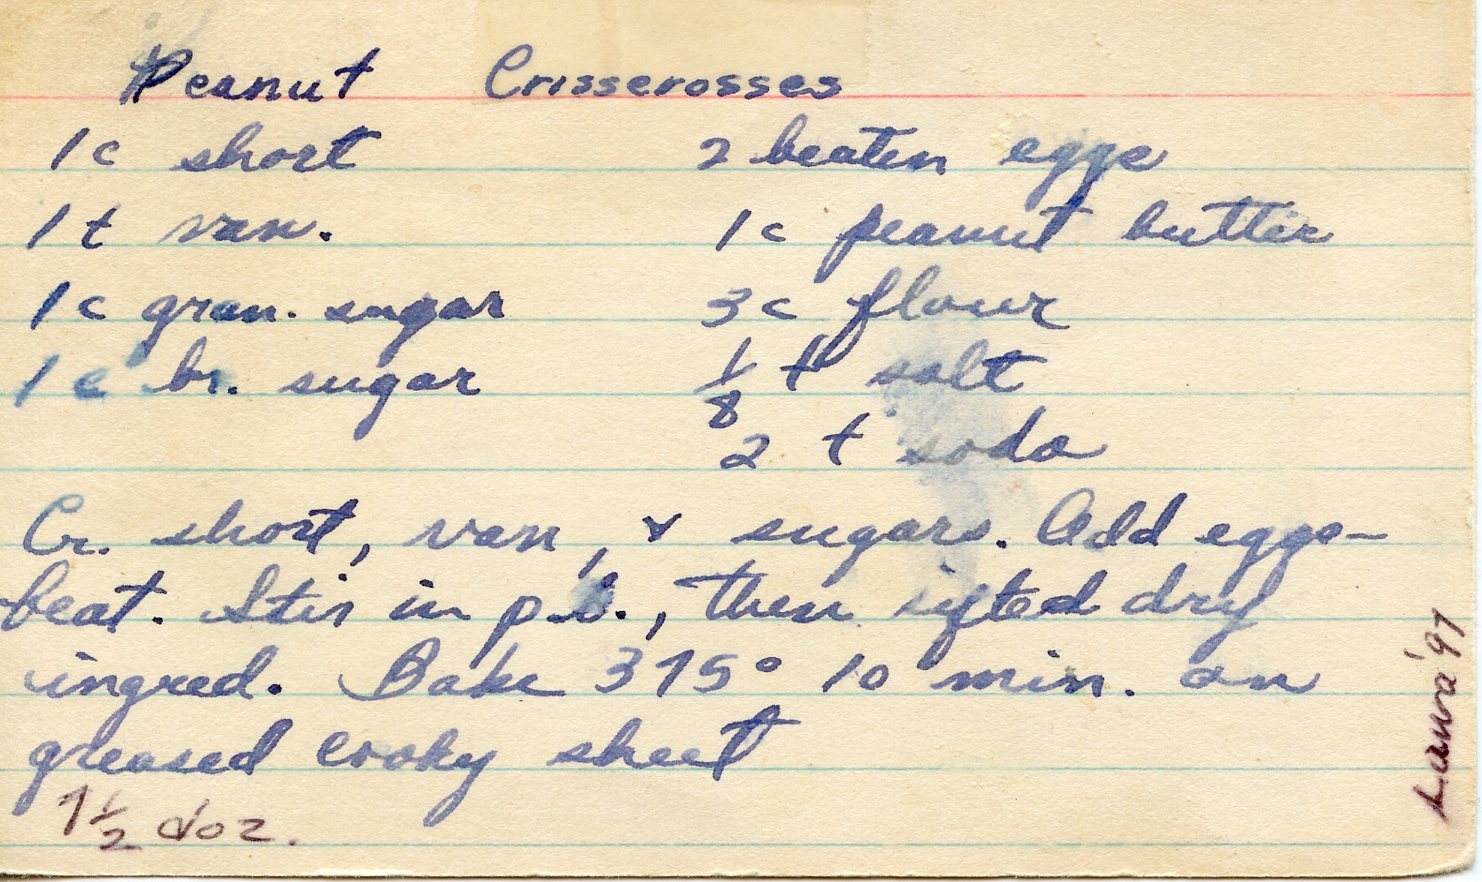 Peanut Crisscrosses
1 c short
1 t van.
1 c gran. sugar
1 c br. sugar
2 beaten eggs
1 c peanut butter
3 c flour
1/8 t salt
2 t soda
Cr. short, van, & sugars. Add eggs—
beat. Stir in p.b., then sifted dry
ingred. Bake 375° 10 min. on
greased cooky sheet
7 1/2 doz.
Laura '97